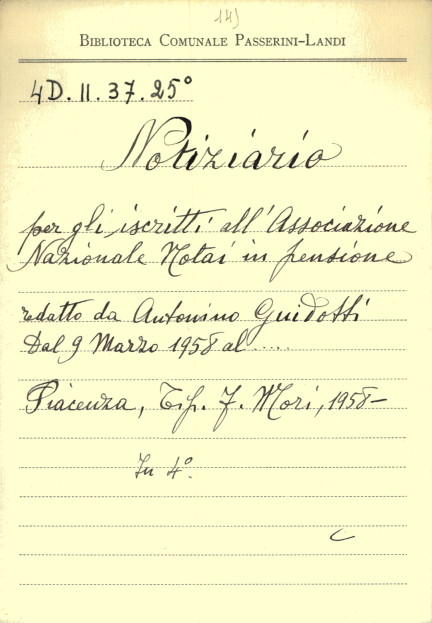 14)
BIBLIOTECA COMUNALE PASSERINI-LANDI
4D. II. 37. 25°
Notiziario
per gli iscritti all'Associazione
Nazionale Notai in pensione
redatto da Antonino Guidotti
Dal 9 Marzo 1958 al .....
Piacenza, Tip. F. Mori, 1958-
In 4°.
C